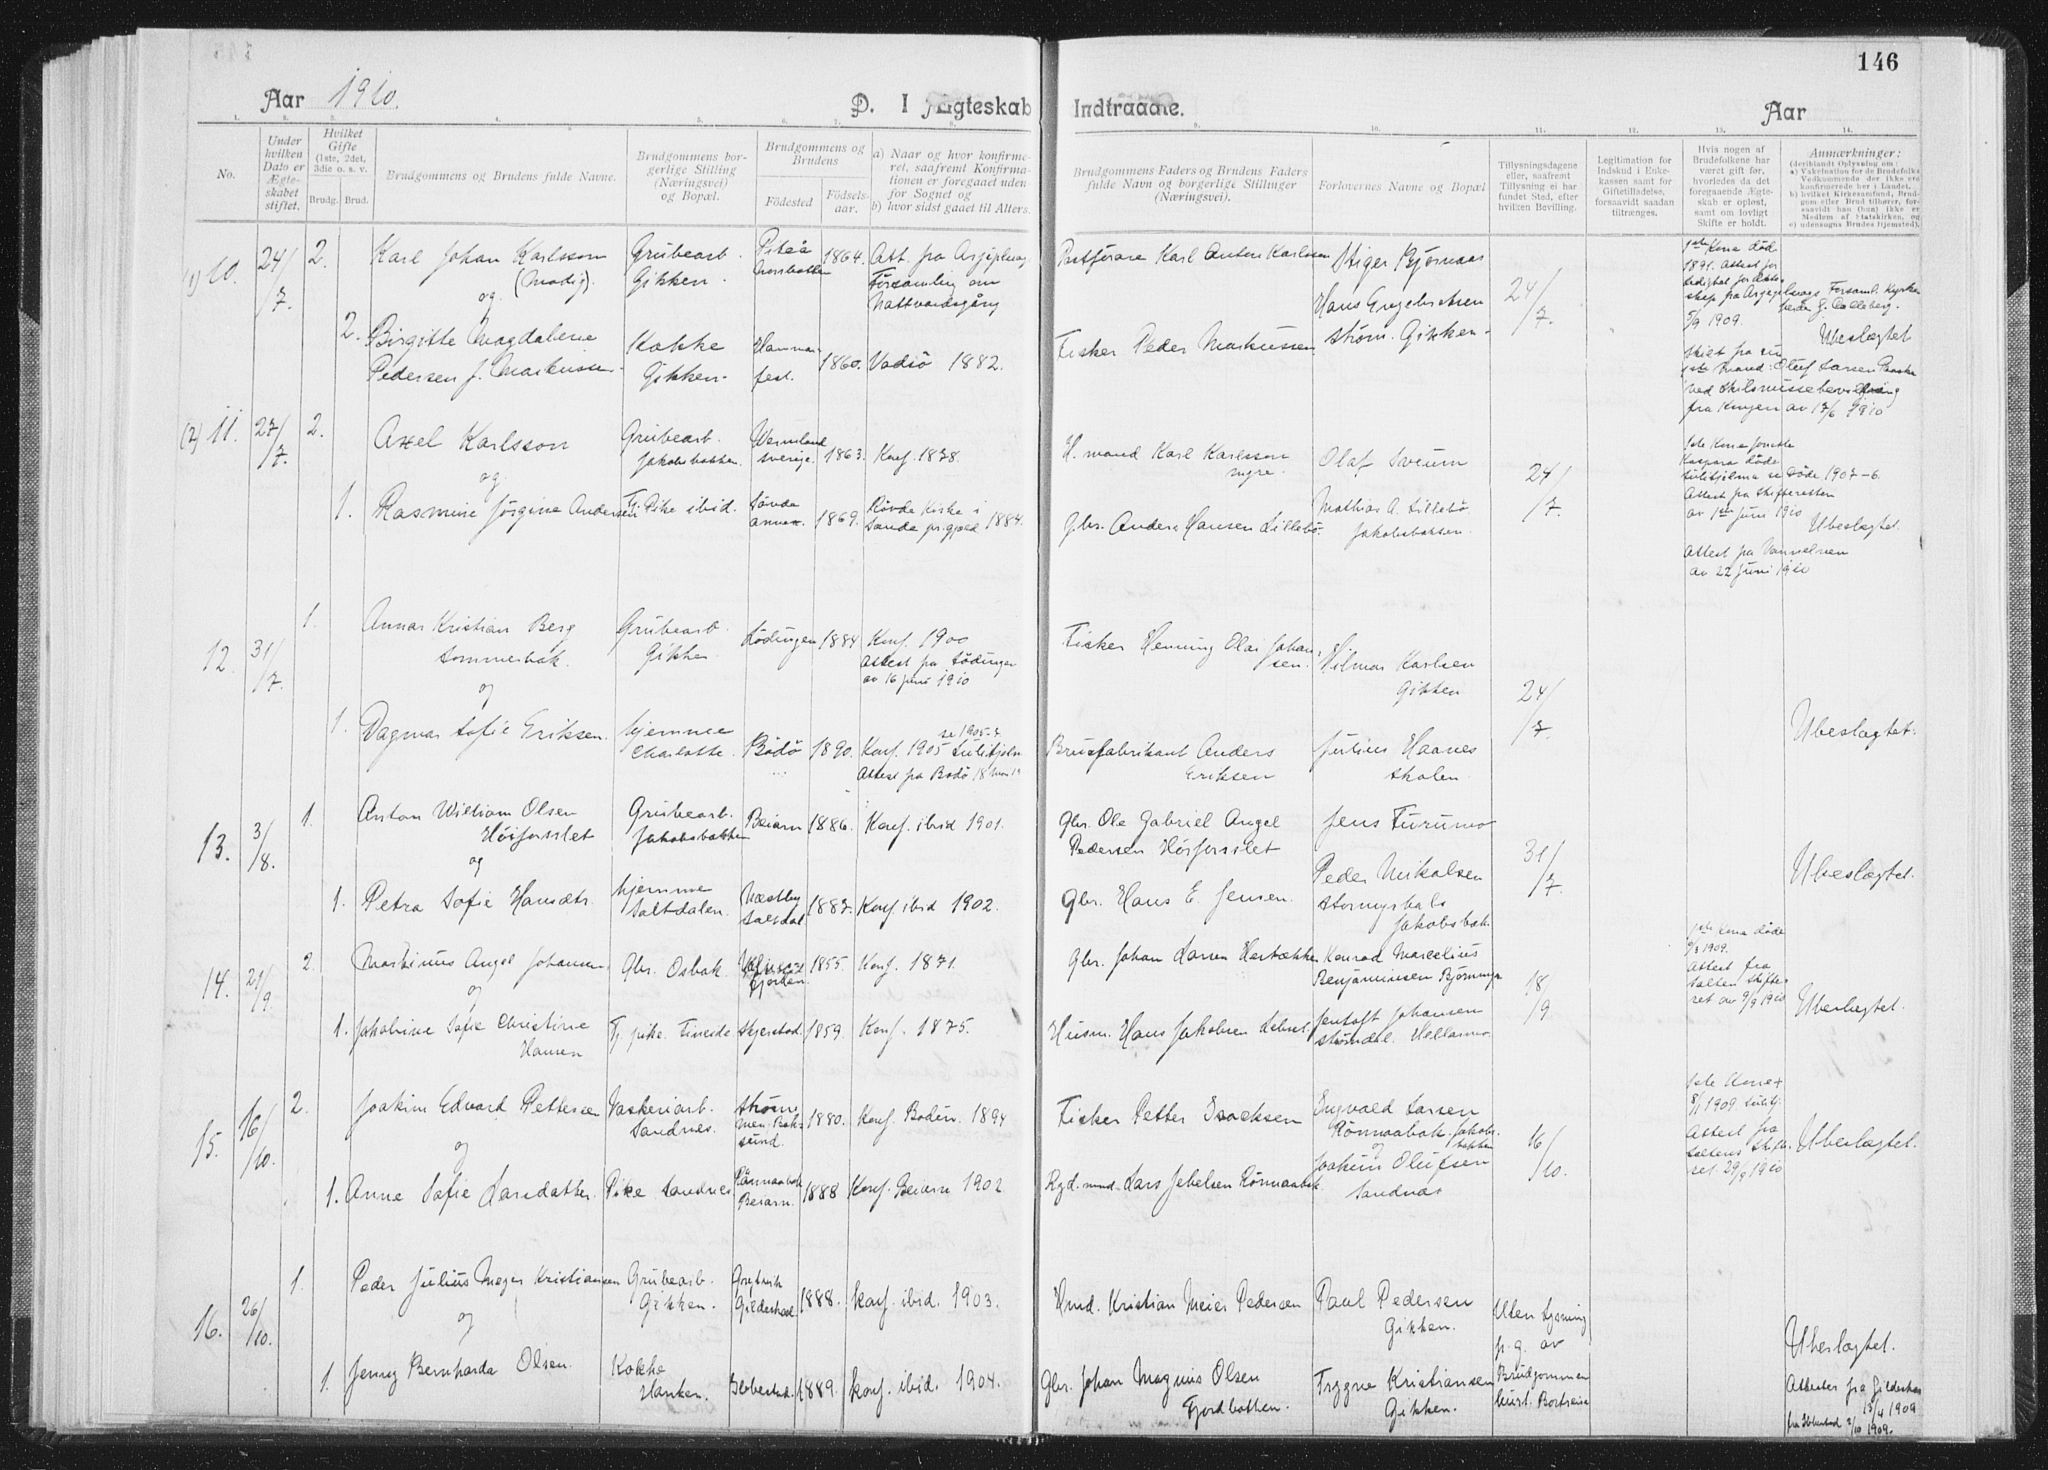 146
Aar 1910.
D. I Ægteskab Indtraadte.
Aar
No.
Under hvilken Dato er Ægteskabet stiftet.
Hvilket Gifte (1ste, 2det, 3die o. s. v.
Brudg. Brud.
Brudgommens og Brudens fulde Navne.
Brudgommens borgerlige Stilling (Næringsvei) og Bopæl.
Brudgommens og Brudens
Fødested
Fødselsaar.
a) Naar og hvor konfirmeret, saafremt Konfirmationen er foregaaet uden for Sognet og
b) hvor sidst gaaet til Alters.
Brudgommens Faders og Brudens Faders fulde Navn og borgerlige Stillinger (Næringsvei).
Forlovernes Navne og Bopæl
Tillysningsdagene eller, saafremt Tillysning ei har fundet Sted, efter hvilken Bevilling.
Legitimation for Indskud i Enkekassen samt for Giftetilladelse, forsaavidt saadan tiltrænges.
Hvis nogen af Brudefolkene har været gift før, hvorledes da det foregaaende Ægteskab er opløst, samt om lovligt Skifte er holdt.
Anmærkninger:
(deriblandt Oplysning om:
a) Vakcination for de Brudefolks Vedkommende der ikke ere konfirmerede her i Landet.
b) hvilket Kirkesamfund, Brudgom eller Brud tilhører, forsaavidt han (hun) ikke er Medlem af Statskirken, og
c) udensogns Brudes Hjemsted).
(1) 10. 24/7. 2. Karl Johan Karlsson (Modig). Grubearb. Gikken. Piteå 1864. Att. fra Arjepluog Församling om Nattvardsgång
Karl Anton Karlsson Stiger Bjørnaas 24/7. 1ste Kone død 1891. Attest for
5/9 1909.
og
2. Birgitte Magdalene Pedersen f. Markussen. Kokke Gikken. Hammerfest. 1860. Vadsö 1882.
Fisker Peder Markussen Hans Engebretsen Strøm. Gikken. Ubeslægtet
Skilt fra sin 1ste Mand: Oluf Larsen
ved Skilsmissebevilling fra Kongen av 17/6 1910
(2) 11. 27/7. 2. Axel Karlsson Grubearb. Jakobsbakken. Wermland Sverige. 1863. Konf. 1878.
H. mand Karl Karlsson Olaf Sveum 24/7. 1ste Kone
døde Sulitjelma se Døde 1907-6.
Attest fra Skifteretten av 1ste Juni 1910 Ubeslægtet.
og
1. Rasmine Jørgine Andersen Tj. Pike ibid. 1869. Kirke i Sande pr.gjæld 1884.
Gbr. Anders Hansen Lillebö. Mathias A. Lillebö. Jakobsbakken.
Attest fra Vannelven av 22 Juni 1910
12. 31/7. 1. Annar Kristian Berg Sommerbak. Grubearb. Gikken. Lödingen 1884 Konf. 1900 Attest fra Lödingen av 16 Juni 1910
Fisker Henning Olai Johansen. Hilmar Karlsen Gikken 24/7.
og
1. Dagmar Sofie Eriksen. hjemme Charlotta. Bodö 1890. Konf. 1905 Sulitjelm se 1905-7 Attest fra Bodö 18
Brusfabrikant Anders Eriksen Julius Haanes Skolen. Ubeslægtet.
13. 3/8. 1. Anton William Olsen Høiforslet Grubearb. Jakobsbakken Beiarn 1886. Konf. ibid 1901.
Gbr. Ole Gabriel Angel Pedersen Høiforslet Jens Furumo 31/7.
og
1. Petra Sofie Hansdtr. hjemme Saltdalen. Næstby Saltdal 1887. Konf. ibid 1902.
Gbr. Hans E. Jensen. Peder Nikolsen Jakobsbak. Ubeslægtet.
14. 21/9. 2. Martinus Angel Johansen Gbr. Osbak. 1855. Konf. 1871.
Gbr. Johan Larsen Konrad Marcelius Benjaminsen 18/9 1ste Kone døde 1909. Attest fra Salten Skifteret av 9/9 1910
og
1. Jakobine Sofie Christine Hansen Tj. pike. Fineide Skjerstad. 1859. Konf. 1875.
Husm. Hans Jakobsen Jentoft Johansen Hellarmo. Ubeslægtet.
15. 16/10. 2. Joakim Edvard Pettersen Vaskeriarb. Sandnes. 1880. Konf. Bodin. 1894
Fisker Petter Isacksen Engvald Larsen Rönnaabak. Jakobsbakken 16/10. 1ste Kone + 8/1 1909. Sulitj. Attest fra Saltens Skifteret. 29/9 1910
og
1. Anne Sofie Larsdatter. Pike Sandnes Rönnaabak Beiarn. 1888 Konf. Beiarn 1902
Ryd.mand Lars Jebelsen Rönnaabak. og Joakim Olufsen Sandnæs Ubeslægtet.
16. 26/10. 1. Peder Julius Meyer Kristiansen Grubearb. Gikken. Gildeskaal 1888. konf. ibid. 1903.
Hmd. Kristian Meier Pedersen Paul Pedersen Gikken. Uten Lysning p.g. av Brudgommens hurt. Bortreise
og
1. Jenny Bernharda Olsen. Kokke Hanken. Ibbestad. 1889. konf. ibid. 1904.
Gbr. Johan Magnus Olsen Fjordbotten. Trygve Kristiansen Gikken. Ubeslægtet.
Attester fra Gildeskaal 13/4 1909
fra Ibbestad 2/10 1909.